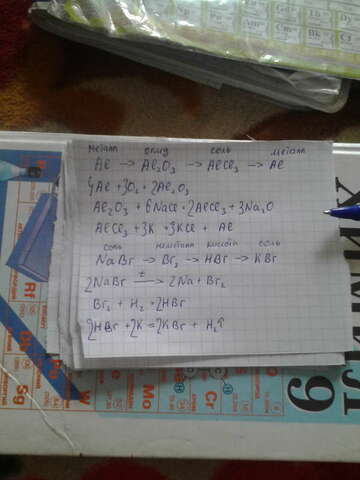 металл оксид соль металл
Al → Al₂O₃ → AlCl₃ → Al
4Al + 3O₂ = 2Al₂O₃
Al₂O₃ + 6NaCl = 2AlCl₃ + 3Na₂O
AlCl₃ + 3K = 3KCl + Al
соль неметалл кислота соль
NaBr → Br₂ → HBr → KBr
2NaBr —t→ 2Na + Br₂
Br₂ + H₂ = 2HBr
2HBr + 2K = 2KBr + H₂↑
Rf
Sg
W
Mo
Cr
9